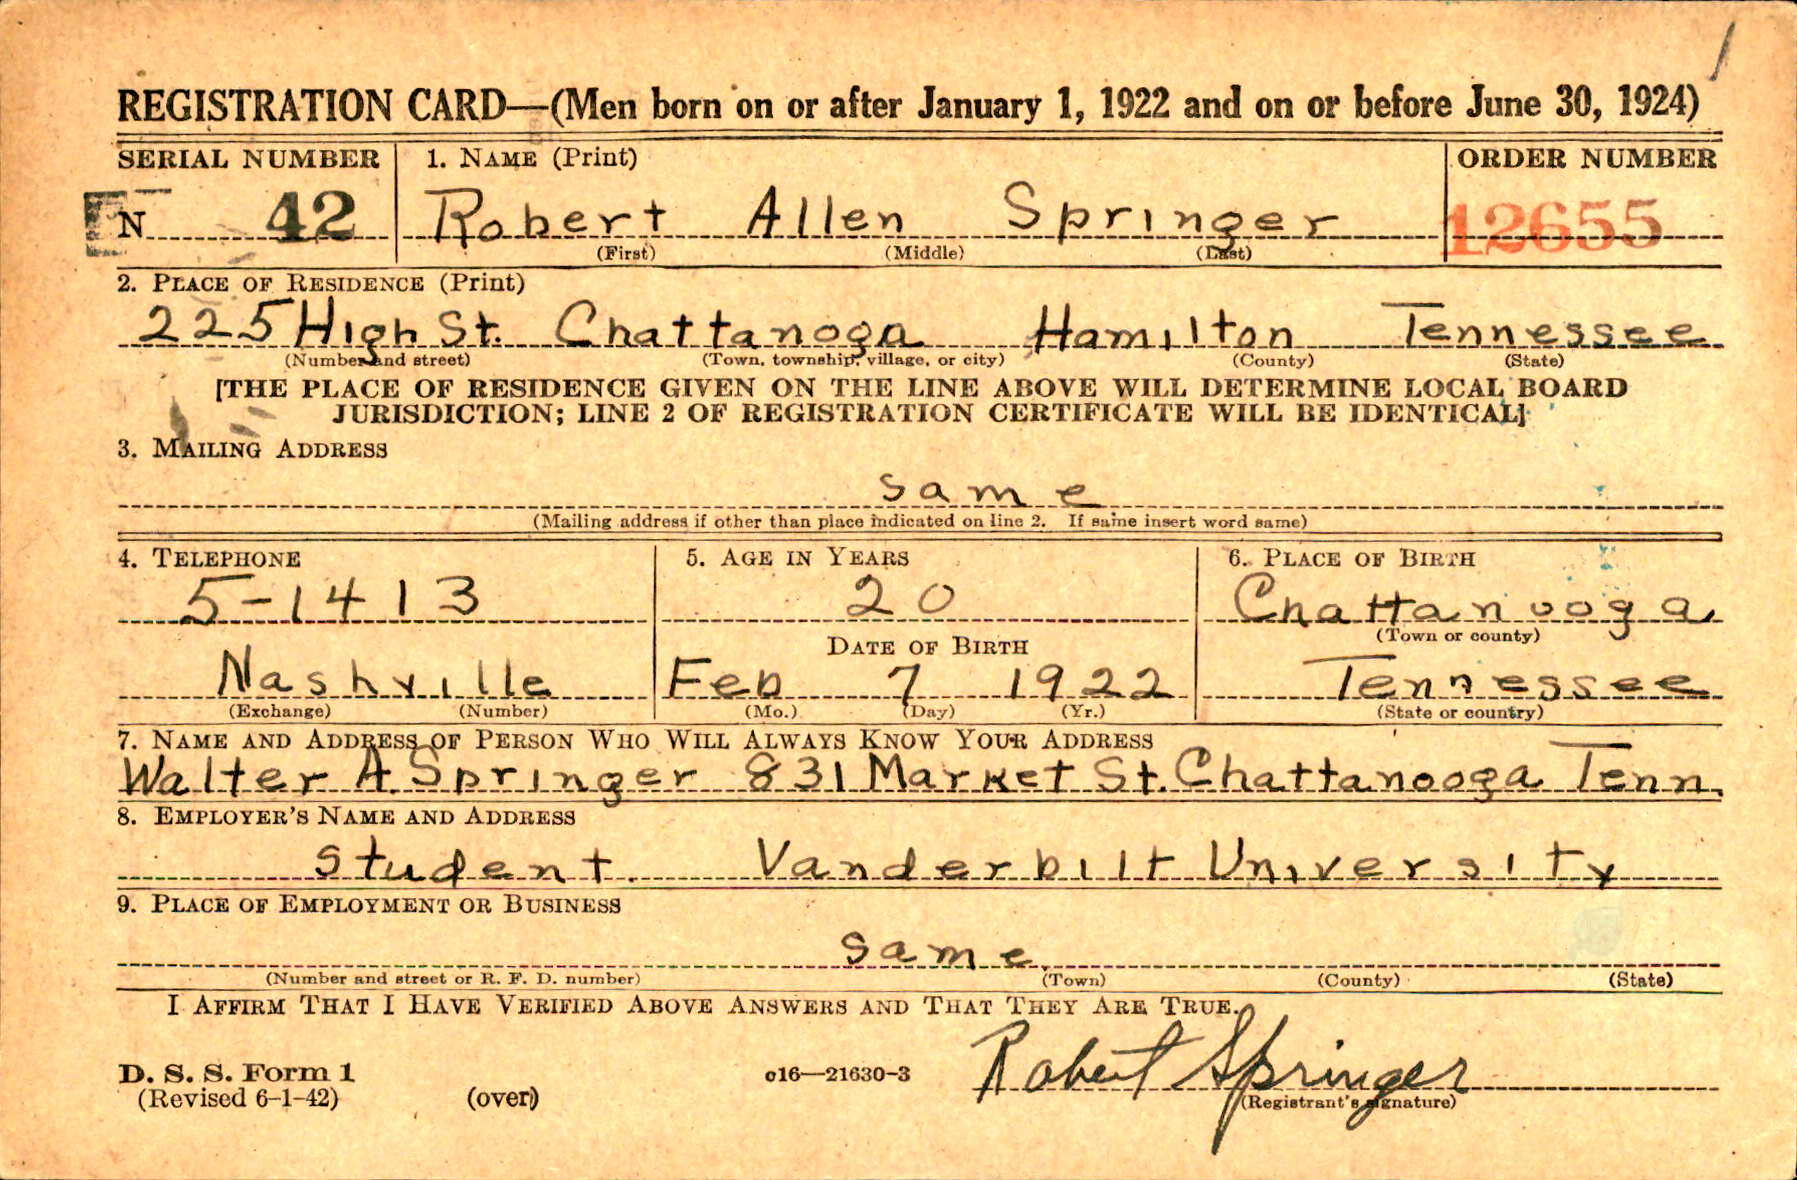 REGISTRATION CARD—(Men born on or after January 1, 1922 and on or before June 30, 1924)
SERIAL NUMBER 1. NAME (Print) ORDER NUMBER
N 42 Robert Allen Springer 12655
(First) (Middle) (Last)
2. PLACE OF RESIDENCE (Print)
225 High St. Chattanoga Hamilton Tennessee
(Number and street) (Town, township, village, or city) (County) (State)
[THE PLACE OF RESIDENCE GIVEN ON THE LINE ABOVE WILL DETERMINE LOCAL BOARD
JURISDICTION; LINE 2 OF REGISTRATION CERTIFICATE WILL BE IDENTICAL]
3. MAILING ADDRESS
same
(Mailing address if other than place indicated on line 2. If same insert word same)
4. TELEPHONE 5. AGE IN YEARS 6. PLACE OF BIRTH
5-1413 20 Chattanooga
DATE OF BIRTH (Town or county)
Nashville Feb 7 1922 Tennessee
(Exchange) (Number) (Mo.) (Day) (Yr.) (State or country)
7. NAME AND ADDRESS OF PERSON WHO WILL ALWAYS KNOW YOUR ADDRESS
Walter A. Springer 831 Market St. Chattanooga Tenn.
8. EMPLOYER'S NAME AND ADDRESS
Student. Vanderbilt University
9. PLACE OF EMPLOYMENT OR BUSINESS
same
(Number and street or R. F. D. number) (Town) (County) (State)
I AFFIRM THAT I HAVE VERIFIED ABOVE ANSWERS AND THAT THEY ARE TRUE.
D. S. S. Form 1 c16—21630-3 Robert Springer
(Revised 6-1-42) (over) (Registrant's signature)